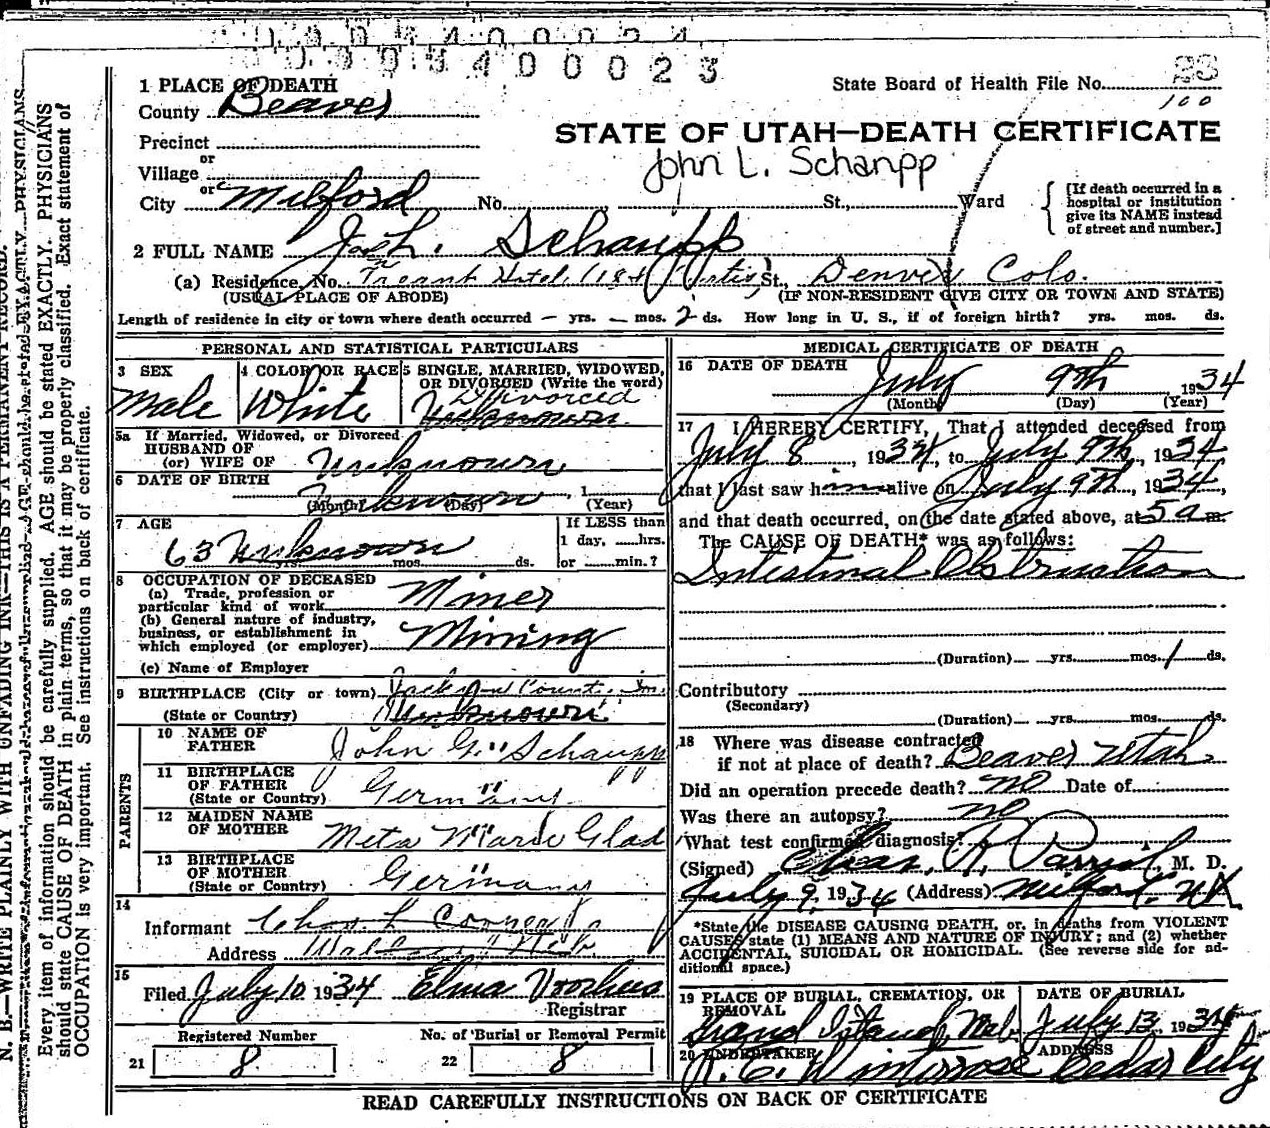 0 0 9 3 4 0 0 0 2 3
1 PLACE OF DEATH
State Board of Health File No. 23
County Beaver
100
STATE OF UTAH—DEATH CERTIFICATE
Precinct
or
John L. Schanpp
Village
or
City Milford No. St., Ward
[If death occurred in a
hospital or institution
give its NAME instead
of street and number.]
2 FULL NAME Joh. Schaupp
(a) Residence, No. Hotel 1184 Curtis St., Denver Colo.
(USUAL PLACE OF ABODE) (IF NON-RESIDENT GIVE CITY OR TOWN AND STATE)
Length of residence in city or town where death occurred — yrs. — mos. 2 ds. How long in U. S., if of foreign birth? yrs. mos. ds.
PERSONAL AND STATISTICAL PARTICULARS
3 SEX 4 COLOR OR RACE 5 SINGLE, MARRIED, WIDOWED,
OR DIVORCED (Write the word)
Divorced
Male White Unknown
5a If Married, Widowed, or Divorced
HUSBAND OF
(or) WIFE OF Unknown
6 DATE OF BIRTH
Unknown , 1
(Month) (Day) (Year)
7 AGE If LESS than
1 day, hrs.
63 Unknown
yrs. mos. ds. or min.?
8 OCCUPATION OF DECEASED
(a) Trade, profession or
particular kind of work Miner
(b) General nature of industry,
business, or establishment in
which employed (or employer) Mining
(c) Name of Employer
9 BIRTHPLACE (City or town) Jackson County
(State or Country) Unknown
PARENTS
10 NAME OF
FATHER John G. Schaupp
11 BIRTHPLACE
OF FATHER
(State or Country) Germany
12 MAIDEN NAME
OF MOTHER Meta Marie Glad
13 BIRTHPLACE
OF MOTHER
(State or Country) Germany
14
Informant Chas. L
Address
15
Filed July 10 1934 Elma
Registrar
Registered Number No. of Burial or Removal Permit
21 8 22 8
MEDICAL CERTIFICATE OF DEATH
16 DATE OF DEATH
July 9th 1934
(Month) (Day) (Year)
17 I HEREBY CERTIFY, That I attended deceased from
July 8, 1934, to July 9th, 1934
that I last saw him alive on July 9th, 1934,
and that death occurred, on the date stated above, at 5 a m.
The CAUSE OF DEATH* was as follows:
Intestinal Obstruction
(Duration) yrs. mos. 1 ds.
Contributory
(Secondary)
(Duration) yrs. mos. ds.
18 Where was disease contracted
if not at place of death? Beaver Utah
Did an operation precede death? no Date of
Was there an autopsy? no
What test confirmed diagnosis?
(Signed) Chas. R. Parrish, M. D.
July 9, 1934 (Address) Milford, Ut.
*State the DISEASE CAUSING DEATH, or, in deaths from VIOLENT
CAUSES state (1) MEANS AND NATURE OF INJURY; and (2) whether
ACCIDENTAL, SUICIDAL OR HOMICIDAL. (See reverse side for ad-
ditional space.)
19 PLACE OF BURIAL, CREMATION, OR DATE OF BURIAL
REMOVAL
Grand Island, Neb. July 13, 1934
20 UNDERTAKER ADDRESS
Winterrose Cedar City
READ CAREFULLY INSTRUCTIONS ON BACK OF CERTIFICATE
N. B.—WRITE PLAINLY WITH UNFADING INK—THIS IS A PERMANENT RECORD.
Every item of information should be carefully supplied. AGE should be stated EXACTLY. PHYSICIANS
should state CAUSE OF DEATH in plain terms, so that it may be properly classified. Exact statement of
OCCUPATION is very important. See instructions on back of certificate.